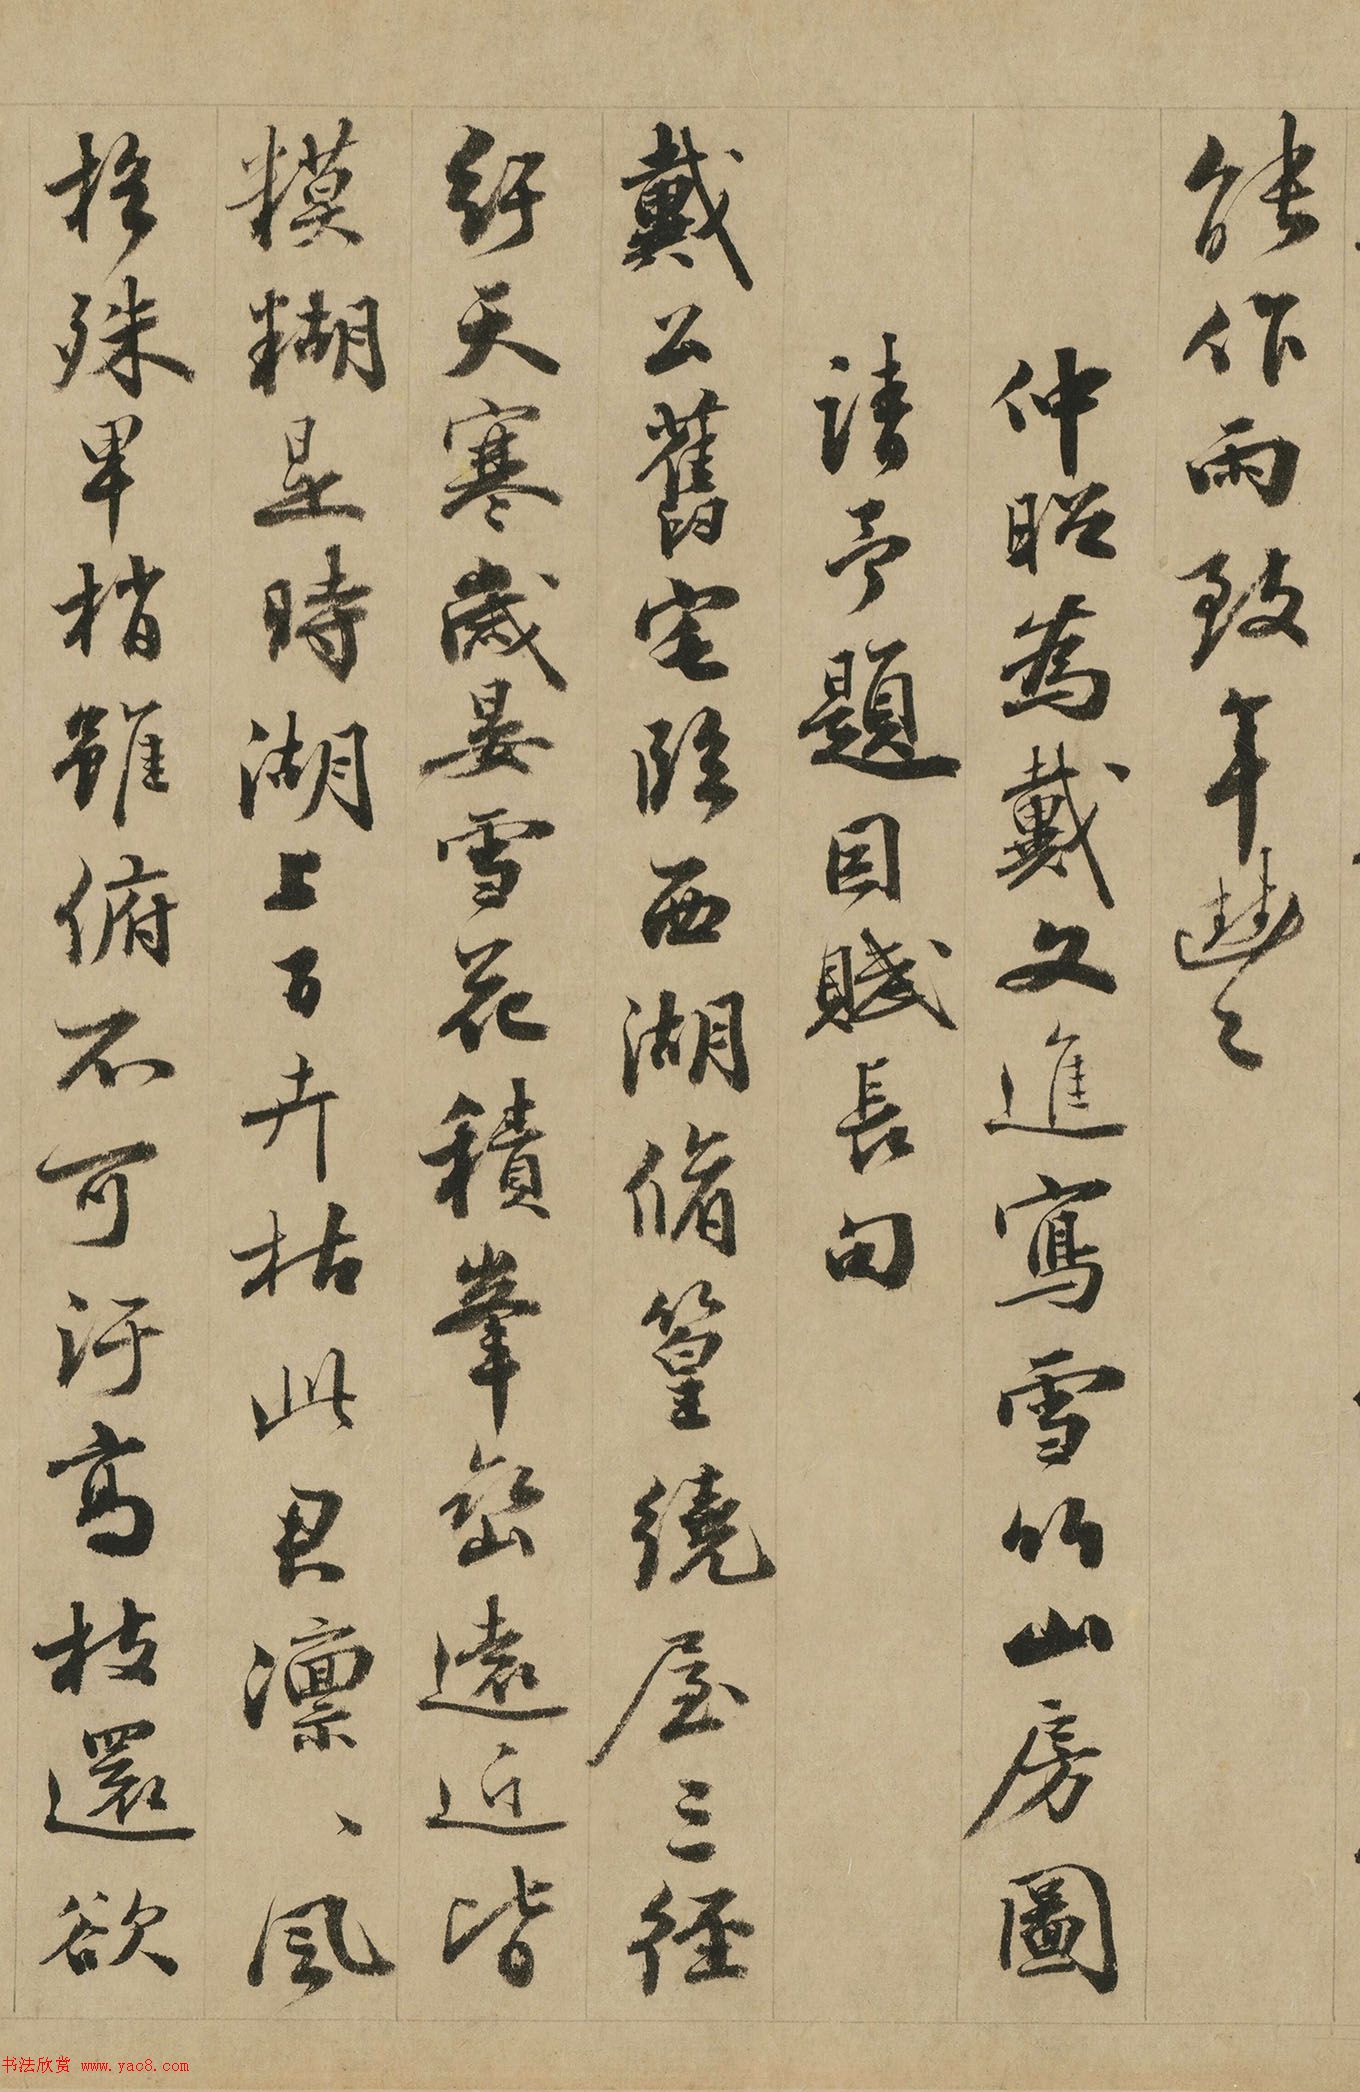 能作雨致年豐〻
仲昭為戴文進寫雪竹山房圖
請予題因賦長句
戴公舊宅臨西湖脩篁繞屋三徑
紆天寒歲晏雪花積峯巒遠近皆
糢糊是時湖上百卉枯此君凛、風
格殊卑梢雖俯不可汙高枝還欲
书法欣赏 www.yac8.com